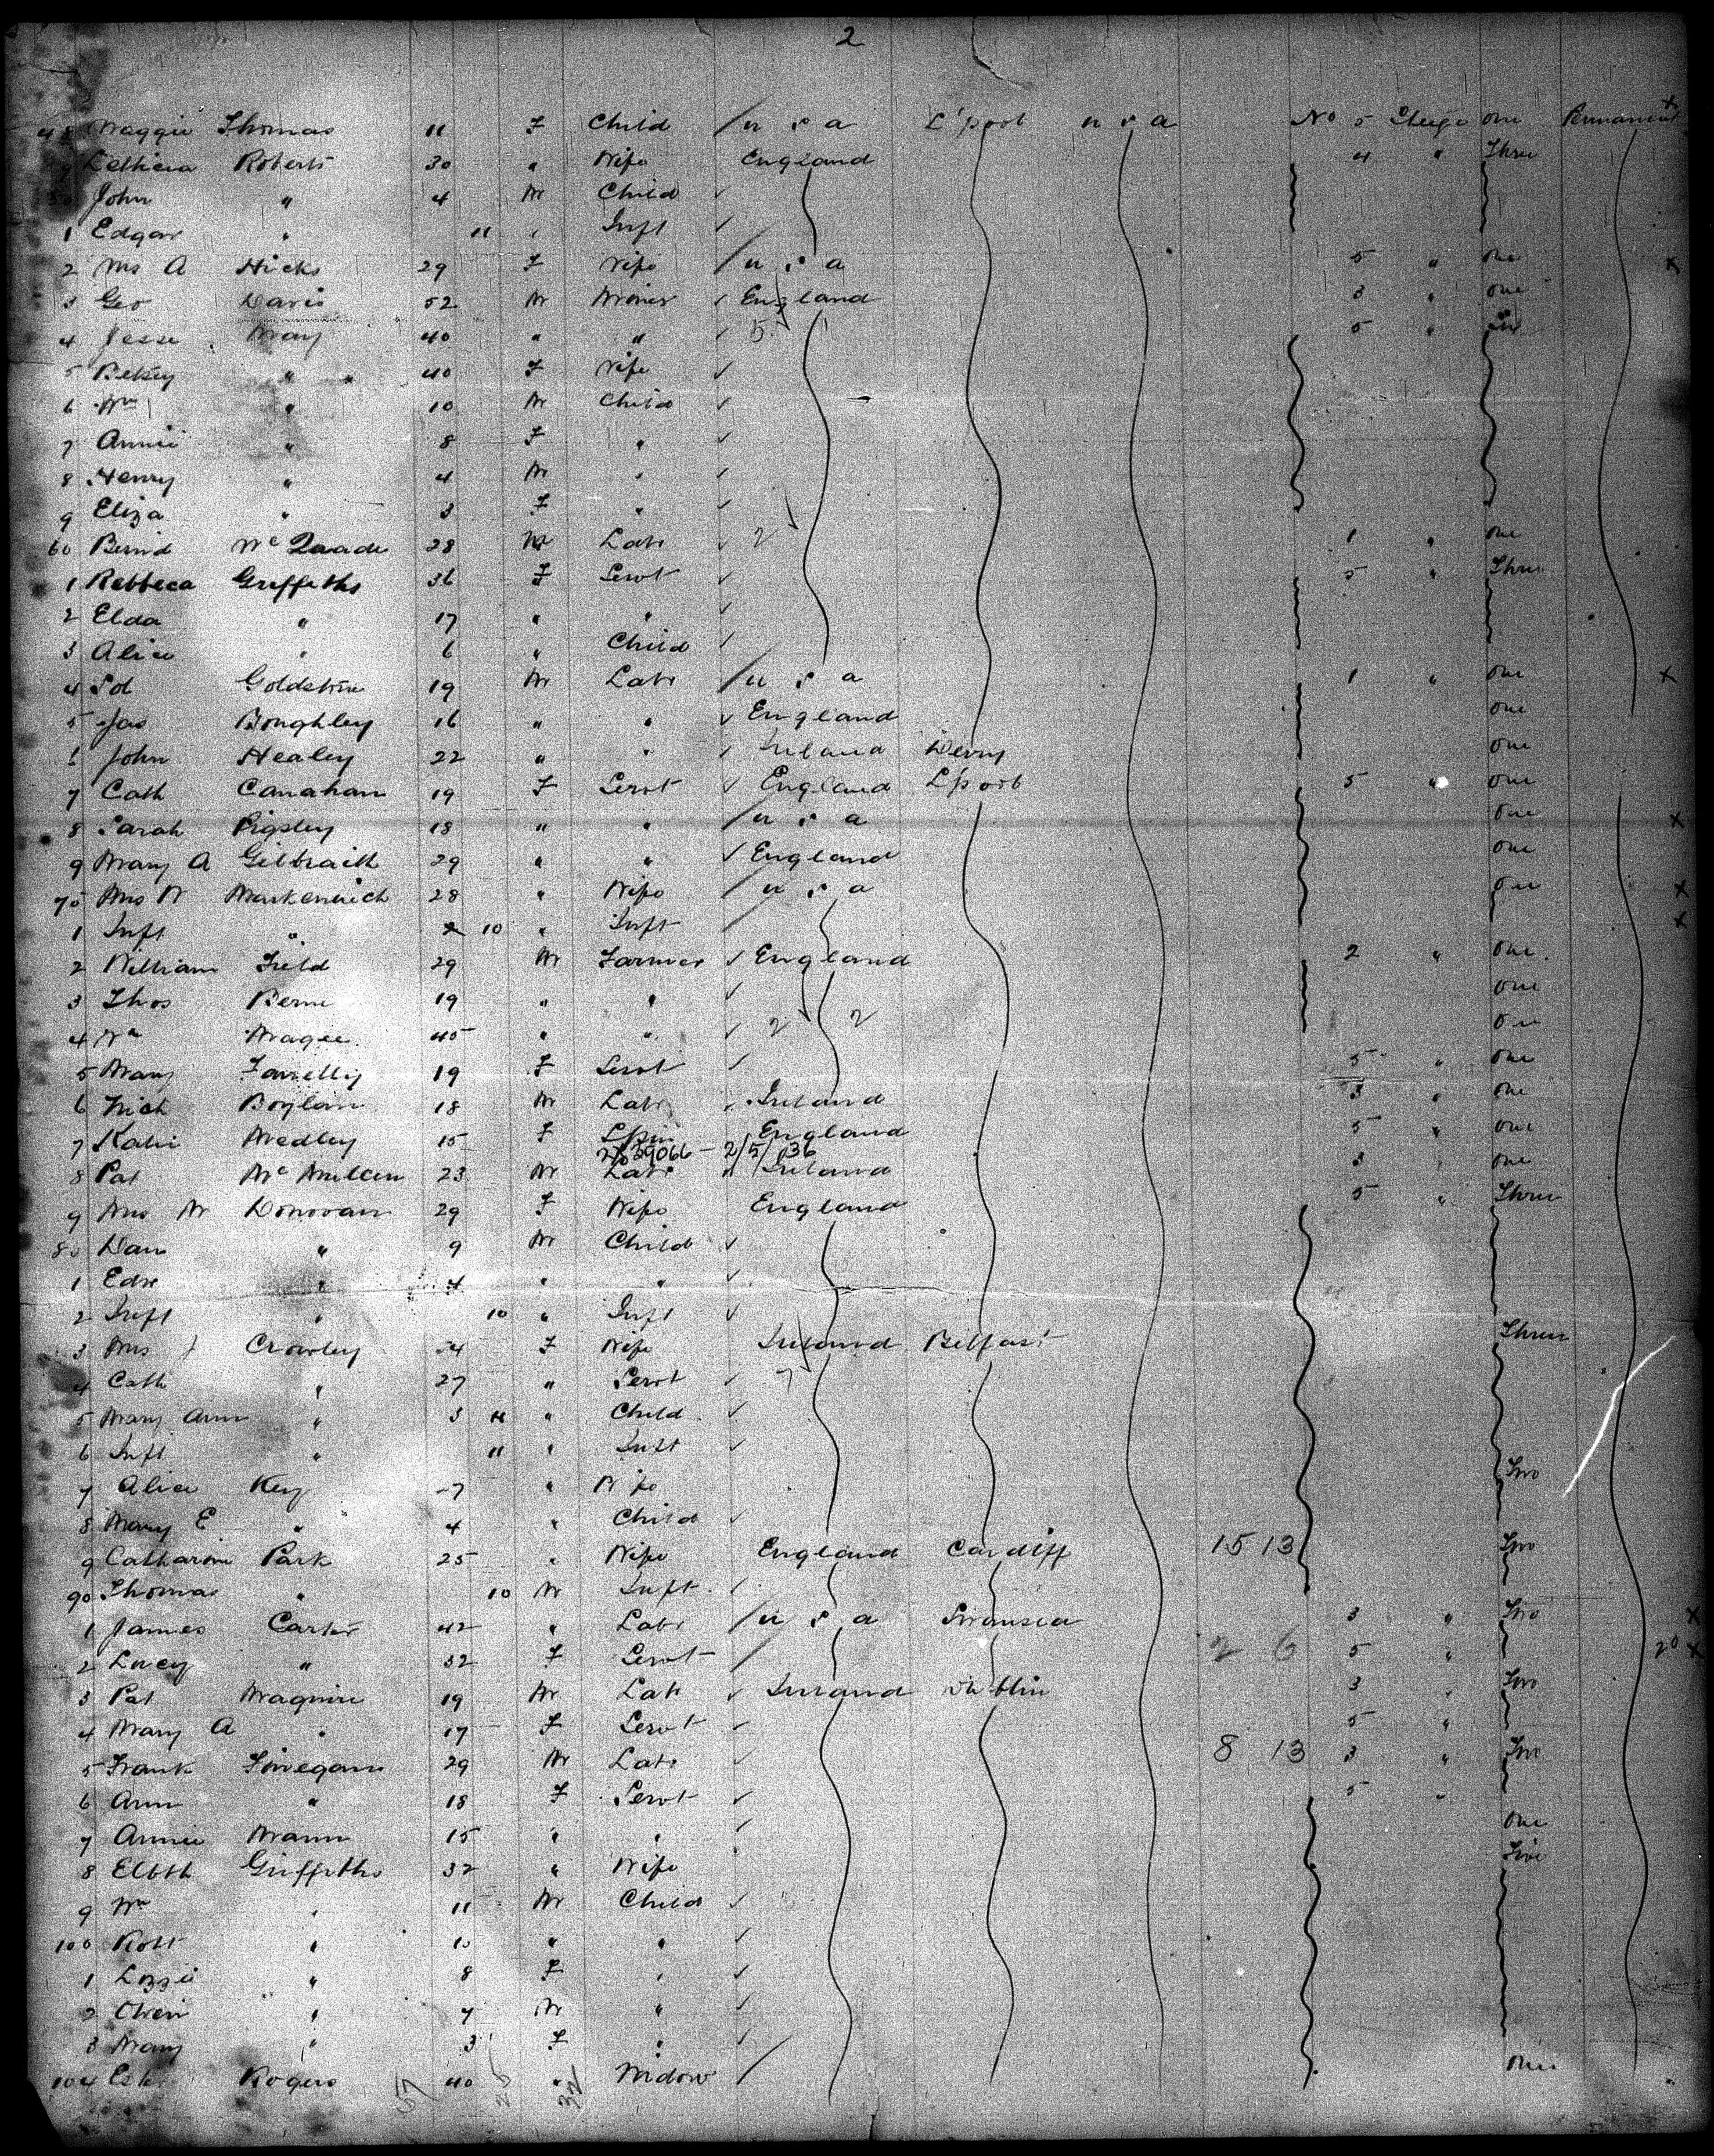 2
48 Maggie Thomas 11 F Child / u s a L'pool u s a No 5 Steege one Permanent x
9 Lethicia Roberts 30 " Wife England 4 " Three
50 John " 4 M Child ✓
1 Edgar " 11 " Inft ✓
2 Mrs A Hicks 29 F Wife / u s a 5 " one x
3 Geo Davis 52 M Miner ✓ England 3 " one
4 Jesse May 40 " " 5 5 "
5 Betsy " 40 F Wife ✓
6 Wm " 10 M Child ✓
7 Annie " 8 F " ✓
8 Henry " 4 M " ✓
9 Eliza " 3 F " ✓
60 Bernd McQuade 28 M Labr ✓ 2 1 " one
1 Rebbeca Griffeths 36 F Servt ✓ 5 " Three
2 Elda " 17 " " ✓
3 Alice " 6 " Child ✓
4 Sol Goldstine 19 M Labr / u s a 1 " one x
5 Jas Boughley 16 " " ✓ England one
6 John Healey 22 " " ✓ Ireland Derry one
7 Cath Canahan 19 F Servt ✓ England L'pool 5 " one
8 Sarah Pigsley 18 " " / u s a one x
9 Mary A Gilbraith 29 " " ✓ England one
70 Mrs W 28 " Wife / u s a one x
1 Inft " 10 " Inft / x
2 William Field 29 M Farmer ✓ England 2 " one
3 Thos Berne 19 " " ✓ one
4 Wm Magee 45 " " ✓ 2 2 one
5 Mary Farrelly 19 F Servt ✓ 5 " one
6 Mich Boylan 18 M Labr ✓ Ireland 3 " one
7 Katie Medley 15 F Spin England 5 " one
2/5/36
8 Pat McMullen 23 M Labr Ireland 3 " one
9 Mrs M Donovan 29 F Wife England 5 " Three
80 Dan " 9 M Child ✓
1 Edw " 4 " " ✓
2 Inft " 10 " Inft ✓
3 Mrs J Crowley F Wife Ireland Belfast Three
4 Cath " 27 " Servt ✓ 7
5 Mary Ann " 3 " Child ✓
6 Inft " 11 " Inft ✓
7 Alice Key " Wife Two
8 Mary E " 4 " Child ✓
9 Catharine Park 25 " Wife England Cardiff 15 13 Two
90 Thomas " 10 M Inft ✓
1 James Carter 42 " Labr / u s a Swansea 3 " Two x
2 Lucy " 32 F Servt / 2 6 5 " 20 x
3 Pat Maguire 19 M Labr ✓ Ireland Dublin 3 " Two
4 Mary A " 17 F Servt ✓ 5 "
5 Frank Finegan 29 M Labr ✓ 8 13 3 " Two
6 Ann " 18 F Servt ✓ 5 "
7 Annie Mann 15 " " ✓ one
8 Elbth Griffiths 32 " Wife Five
9 Wm " 11 M Child ✓
100 Robt " 10 " " ✓
1 Lizzie " 8 F " ✓
2 Owen " 7 M " ✓
3 Mary " 3 F " ✓
104 Rogers 40 " Widow / one
57 25 32